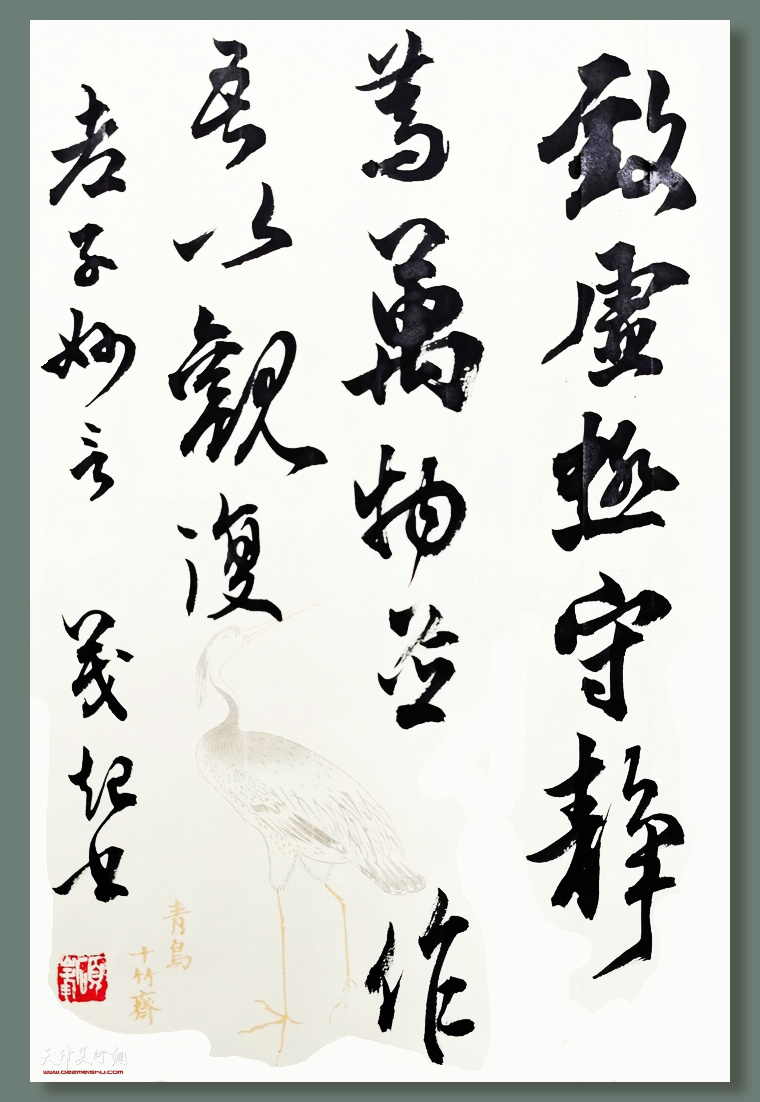 致虛極守靜
篤萬物並作
吾以觀復
老子妙言 茂起书
青鳥
十竹齋
天津美術網
www.022meishu.com